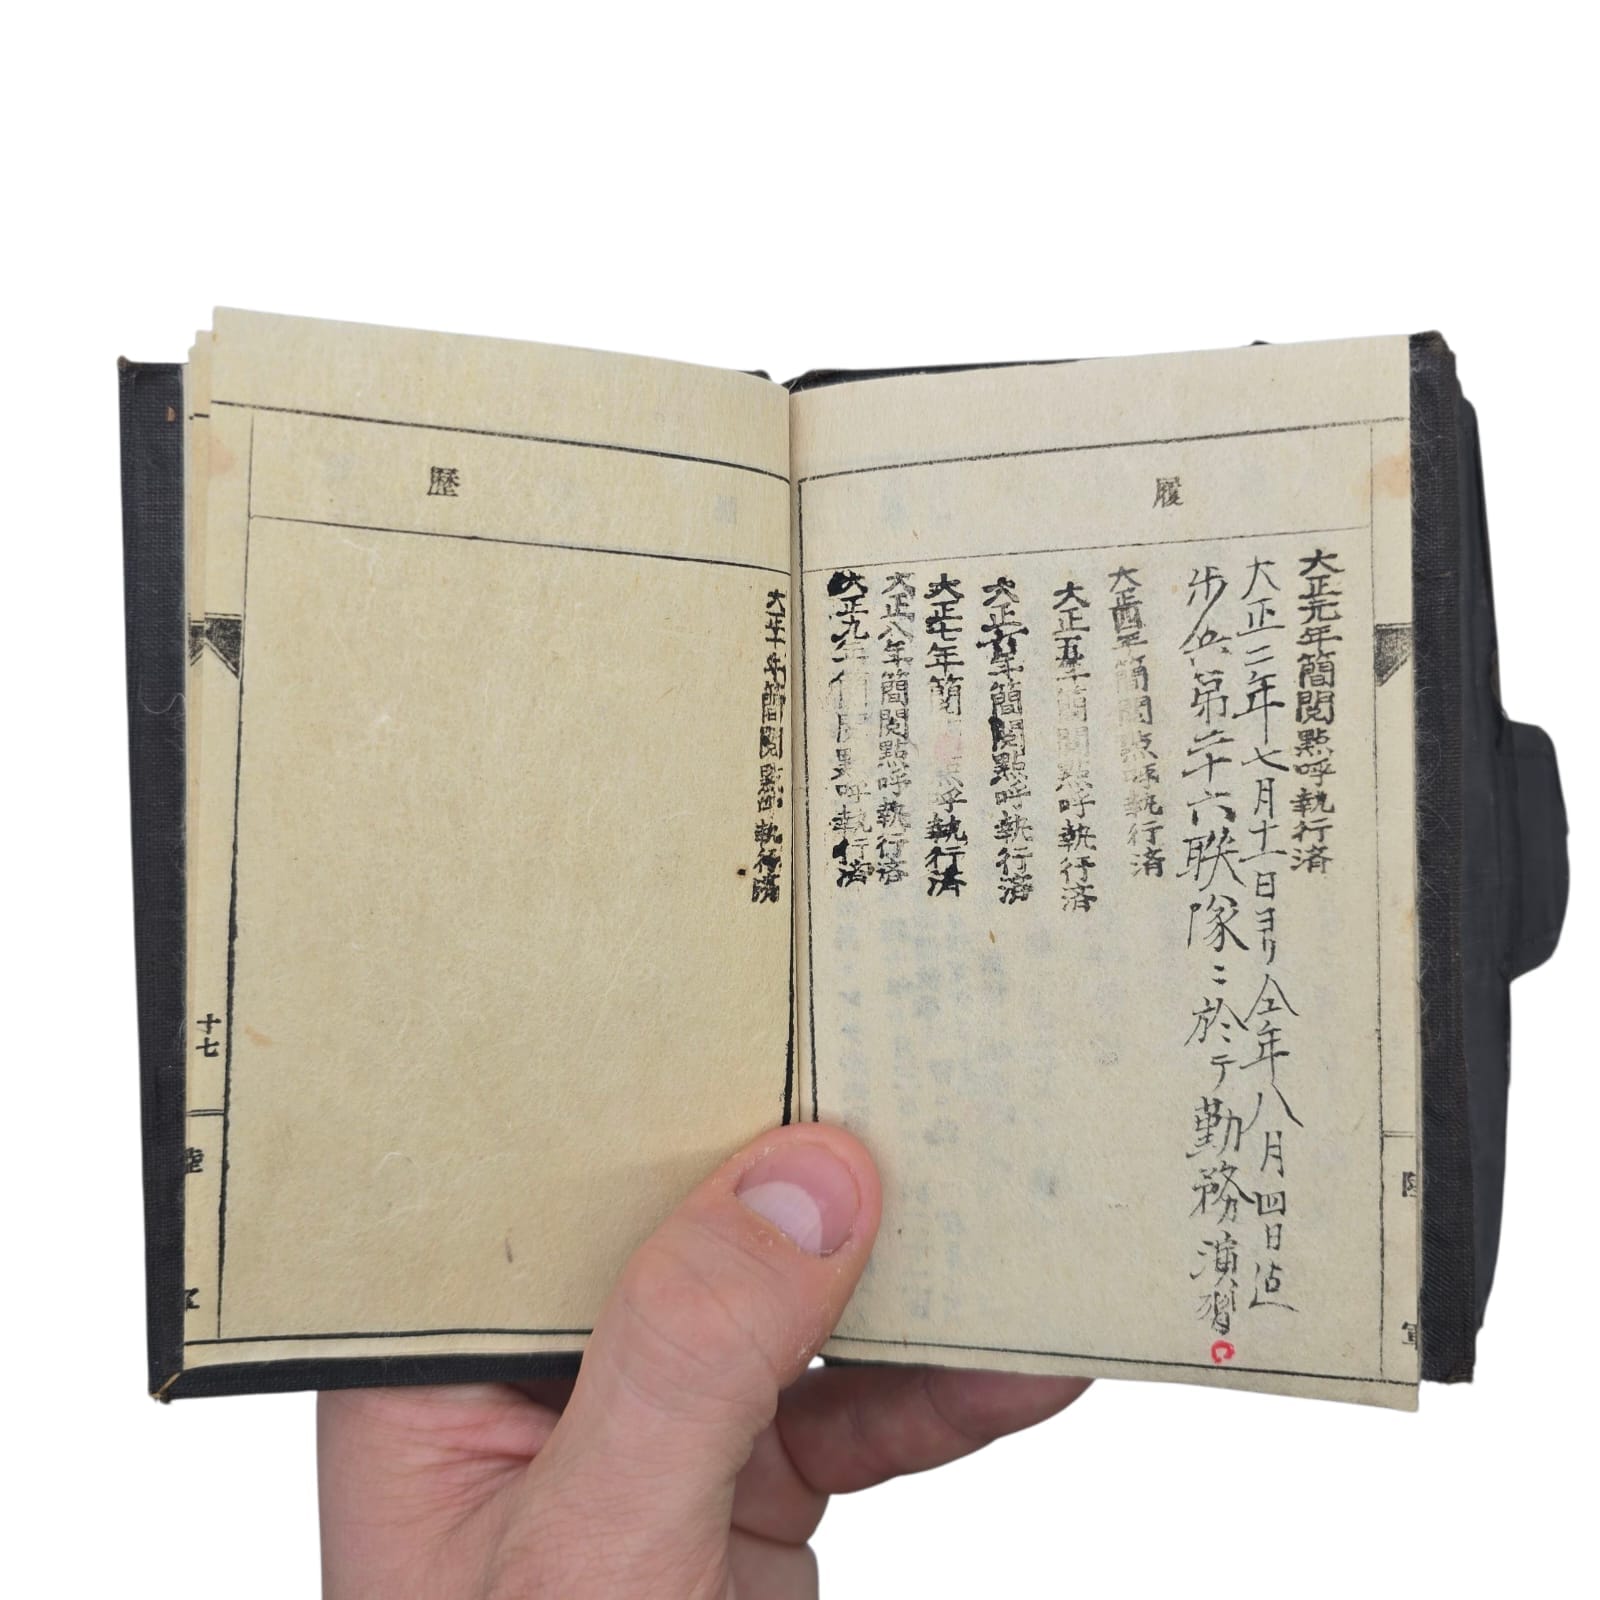 履
大正元年簡閲點呼執行済
大正二年七月十一日ヨリ仝年八月四日迠
歩兵第二十六聯隊ニ於テ勤務演習
大正四年簡閲点呼執行済
大正五年簡閲點呼執行済
大正六年簡閲點呼執行済
大正七年簡 点呼執行済
大正八年簡閲點呼執行済
大正九年簡閲點呼執行済
歴
大正十年簡閲點呼執行済
十七
陸
軍